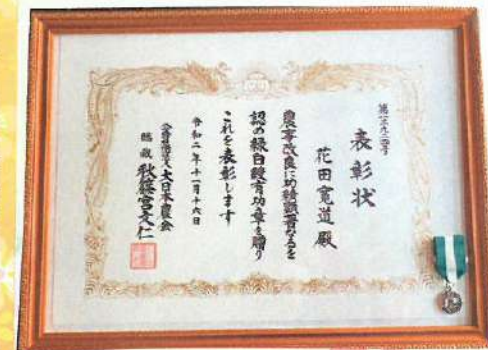 表彰状
花田寛道殿
農事改良に功績顕著なるを
認め緑白綬有功章を贈り
これを表彰します
令和二年十一月十六日
公益社団法人大日本農会
総裁 秋篠宮文仁